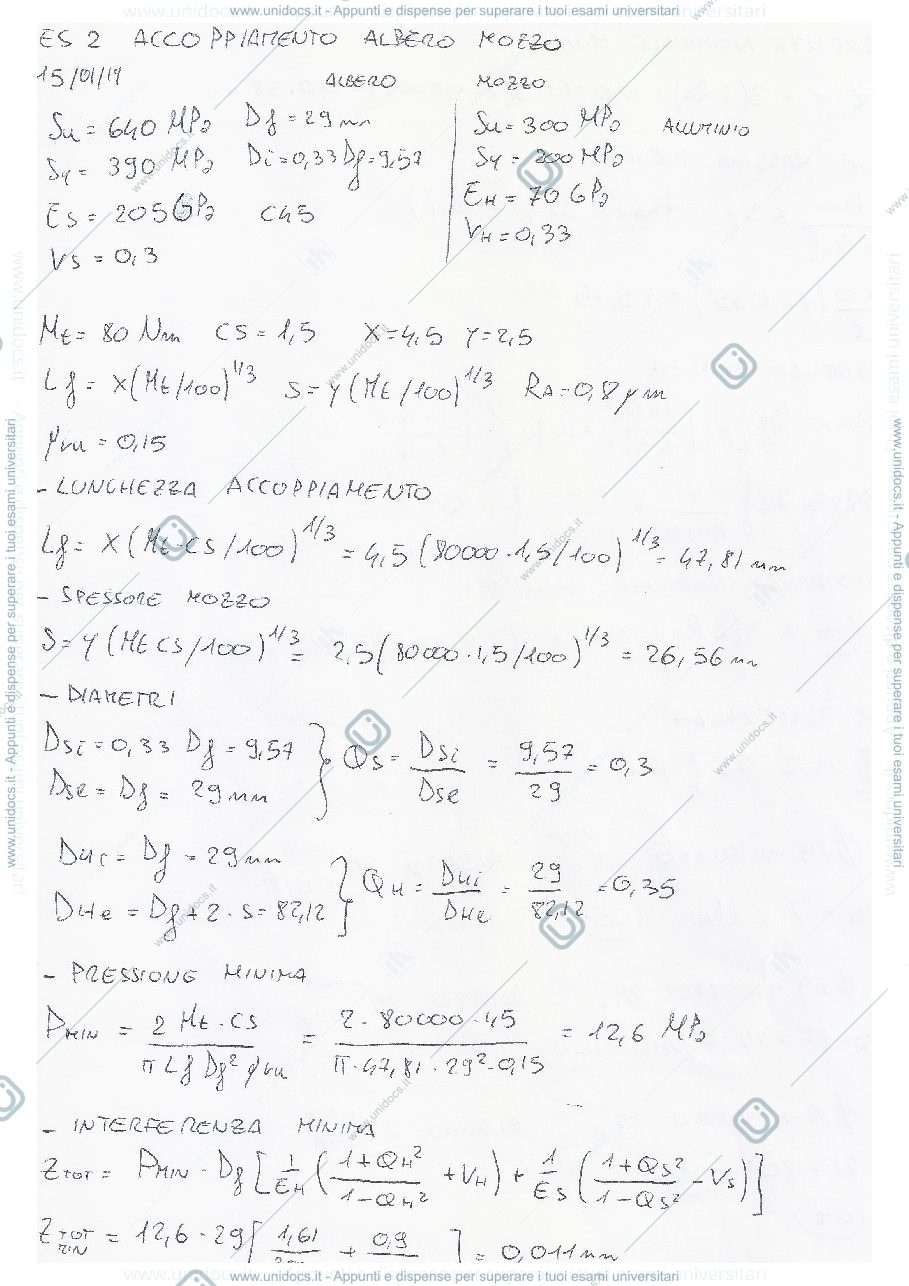 www.unidocs.it - Appunti e dispense per superare i tuoi esami universitari
ES 2 ACCOPPIAMENTO ALBERO MOZZO
15/01/14 ALBERO MOZZO
Su = 640 MPa Df = 29 mm Su = 300 MPa ALLUMINIO
Sy = 390 MPa Di = 0,33 Df = 9,57 Sy = 200 MPa
Es = 205 GPa C45 EH = 70 GPa
Vs = 0,3 VH = 0,33
Mt = 80 Nm CS = 1,5 X = 4,5 Y = 2,5
Lf = X (Mt/100)^1/3 S = Y (Mt/100)^1/3 RA = 0,8 μm
μm = 0,15
- LUNGHEZZA ACCOPPIAMENTO
Lf = X (Mt·CS/100)^1/3 = 4,5 (80000·1,5/100)^1/3 = 47,81 mm
- SPESSORE MOZZO
S = Y (Mt CS/100)^1/3 = 2,5 (80000·1,5/100)^1/3 = 26,56 mm
- DIAMETRI
Dsi = 0,33 Df = 9,57 } Qs = Dsi/Dse = 9,57/29 = 0,3
Dse = Df = 29 mm
DHi = Df = 29 mm } QH = DHi/DHe = 29/82,12 = 0,35
DHe = Df + 2·S = 82,12
- PRESSIONE MINIMA
PMIN = 2 Mt·CS / π Lf Df² μm = 2·80000·45 / π·47,81·29²·0,15 = 12,6 MPa
- INTERFERENZA MINIMA
ZTOT = PMIN · Df [1/EH (1+QH²/1-QH² + VH) + 1/Es (1+Qs²/1-Qs² - Vs)]
ZTOT MIN = 12,6 · 29 [1,61 + 0,9] = 0,011 mm
www.unidocs.it - Appunti e dispense per superare i tuoi esami universitari